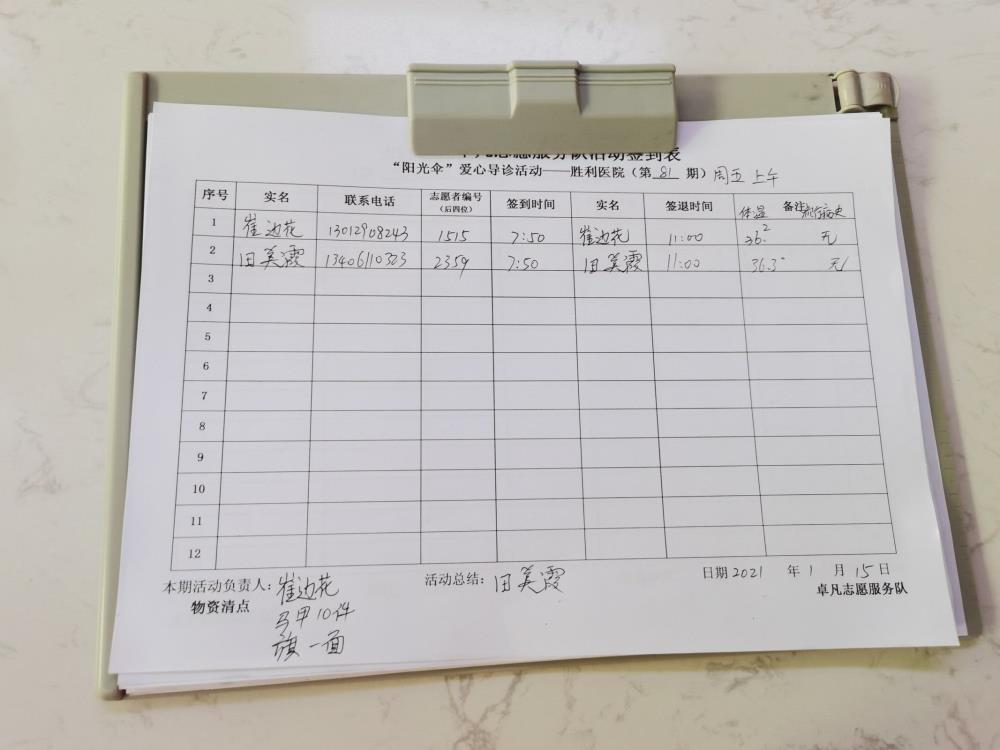 卓凡志愿服务队活动签到表
“阳光伞”爱心导诊活动——胜利医院（第 81 期）周五上午
序号 实名 联系电话 志愿者编号（后四位） 签到时间 实名 签退时间 体温 备注 病史
1 崔边花 13012908243 1515 7:50 崔边花 11:00 36.2 无
2 田美霞 13406110323 2359 7:50 田美霞 11:00 36.3° 无
3
4
5
6
7
8
9
10
11
12
本期活动负责人：崔边花 活动总结：田美霞 日期 2021 年 1 月 15 日
物资清点 卓凡志愿服务队
马甲10件
旗一面